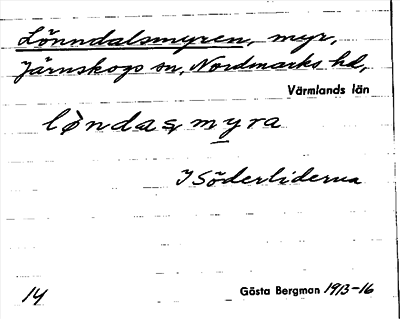 Lönndalsmyren, myr,
Järnskogs sn, Nordmarks hd,
Värmlands län
myra
I Söderliderna
14 Gösta Bergman 1913-16